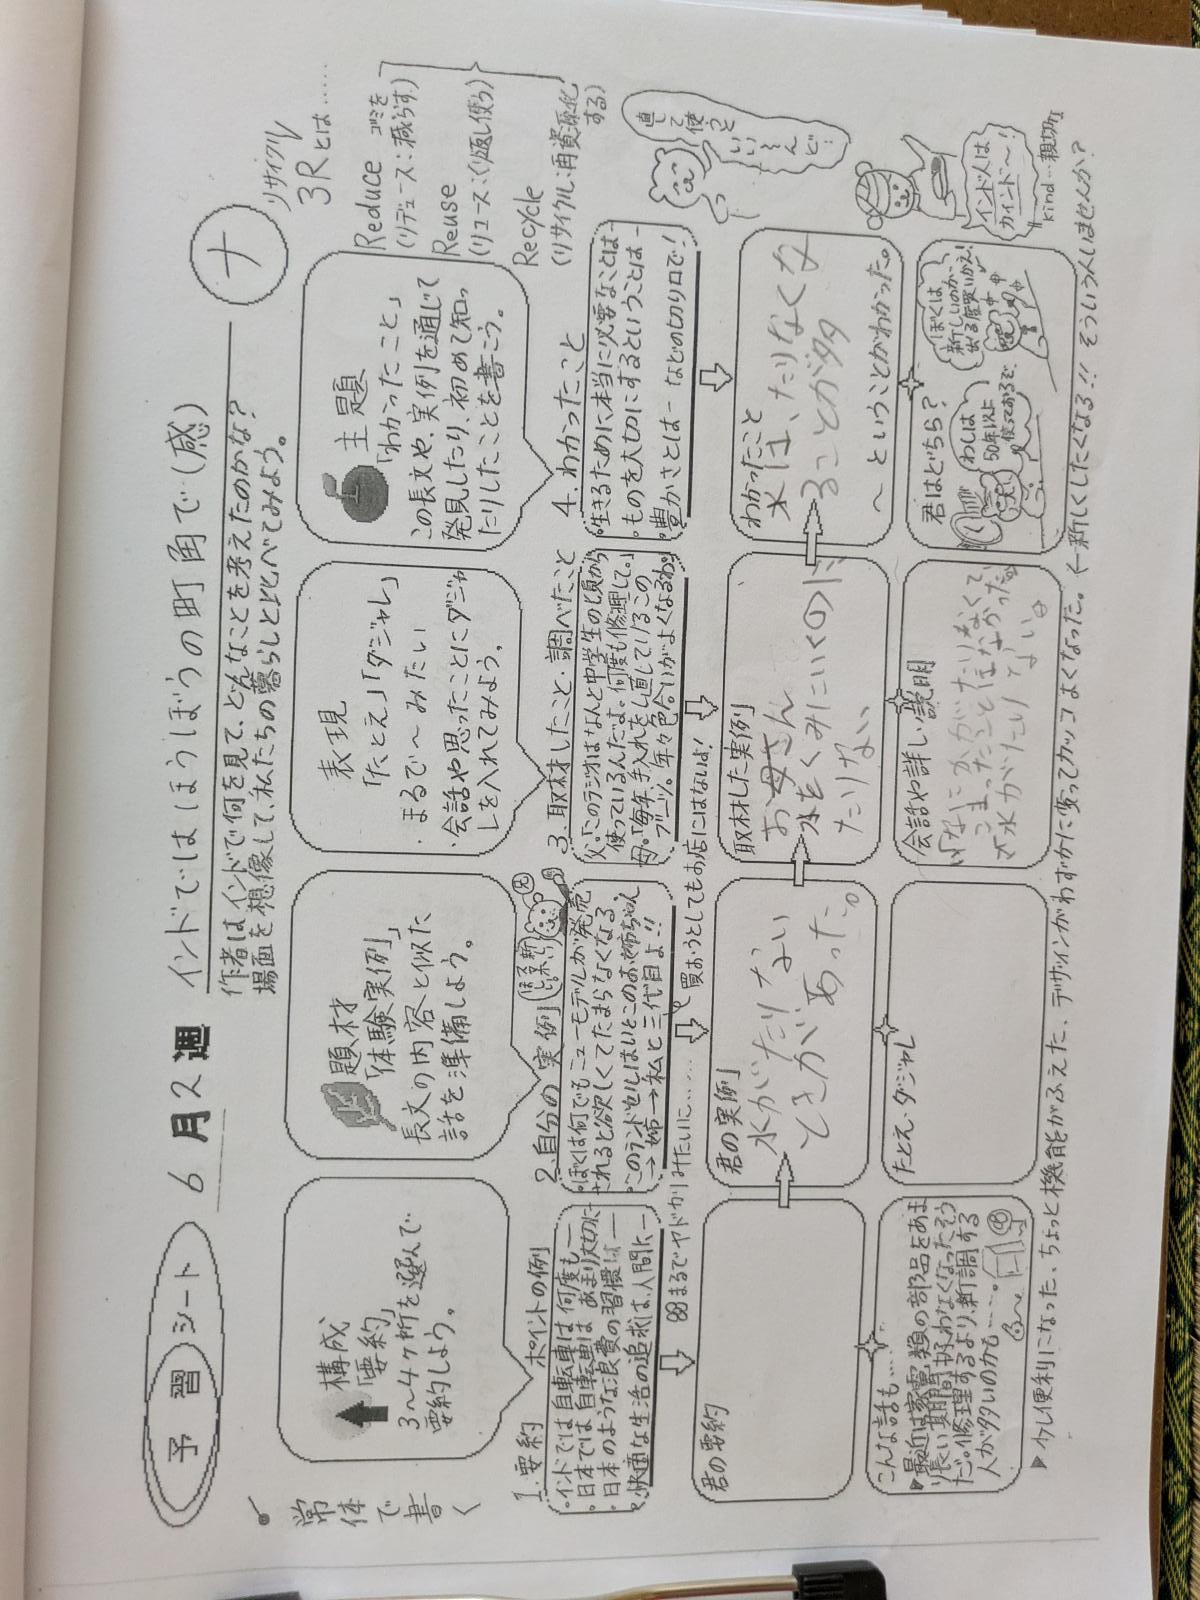 予習シート
6月2週
インドではほうぼうの町角で(感)
ナ
作者はインドで何を見て、どんなことを考えたのかな?
場面を想像して、私たちの暮らしと比べてみよう。
リサイクル
3Rとは……
Reduce ゴミを
(リデュース:減らす)
Reuse
(リユース:くり返し使う)
Recycle
(リサイクル:再資源化
する)
常体で書く
構成
「要約」
3〜4ヶ所を選んで
要約しよう。
題材
「体験実例」
長文の内容と似た
話を準備しよう。
表現
「たとえ」「ダジャレ」
・まるで〜みたい
・会話や思ったことにダジャ
レを入れてみよう。
主題
「わかったこと」
この長文や、実例を通じて
発見したり、初めて知っ
たりしたことを書こう。
1.要約 ポイントの例
・インドでは自転車は何度も―
・日本では自転車はあまり大切に―
・日本のような浪費の習慣は―
・快適な生活の追求は、人間に―
2.自分の実例
・ぼくは何でもニューモデルが発売
されると欲しくてたまらなくなる。
・このランドセルはいとこのお姉ちゃん
→姉→私と三代目よ!!
まるでヤドカリみたいに……
買おうとしてもお店にはないよ!
3.取材したこと・調べたこと
父「このラジオはなんと中学生の頃から
使っているんだよ。何度も修理して。」
母「毎年、手入れをし直しているこの
ブーツ。年々色合いがよくなるわ。」
4.わかったこと
・生きるために本当に必要なことは―
・ものを大切にするということは―
・豊かさとは― などの切り口で!
直して使うといいそんど!
君の要約
君の実例
水がたりない
ときがあった。
取材した実例
お母さん
水をくみにいくのに
たりない
わかったこと
水は、たりなくな
ることが多
〜ということがわかった。
こんな話も……
▶最近は家電類の部品をあま
り長い期間おかなくなったそう
だ。修理するより、新調する
人が多いのかも……。
たとえ・ダジャレ
会話や詳しい説明
「なにかがたりなくて
こまったことはなかった
「水がたりない。
君はどちら?
わしは
50年以上
使っておるぞ
ぼくは、
新しいのが
出る度買いかえ!
インド人は
カインド〜!
kind…親切な
▶少し便利になった、ちょっと機能がふえた、デザインがわずかに変ってカッコよくなった。←新しくしたくなる!! そういう人いませんか?